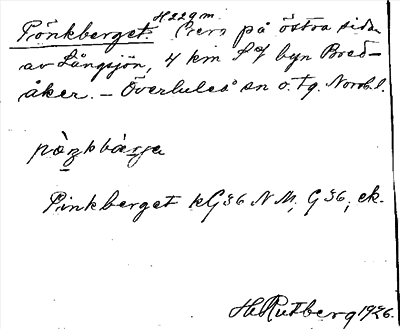 H 229 m.
Pönkberget. Berg på östra sidan
av Långsjön, 4 km S of byn Bred-
åker. – Överluleå sn o. tg. Norrb. l.
Pinkberget kG36 NM, G36, ek.
H. Rutberg 1926.